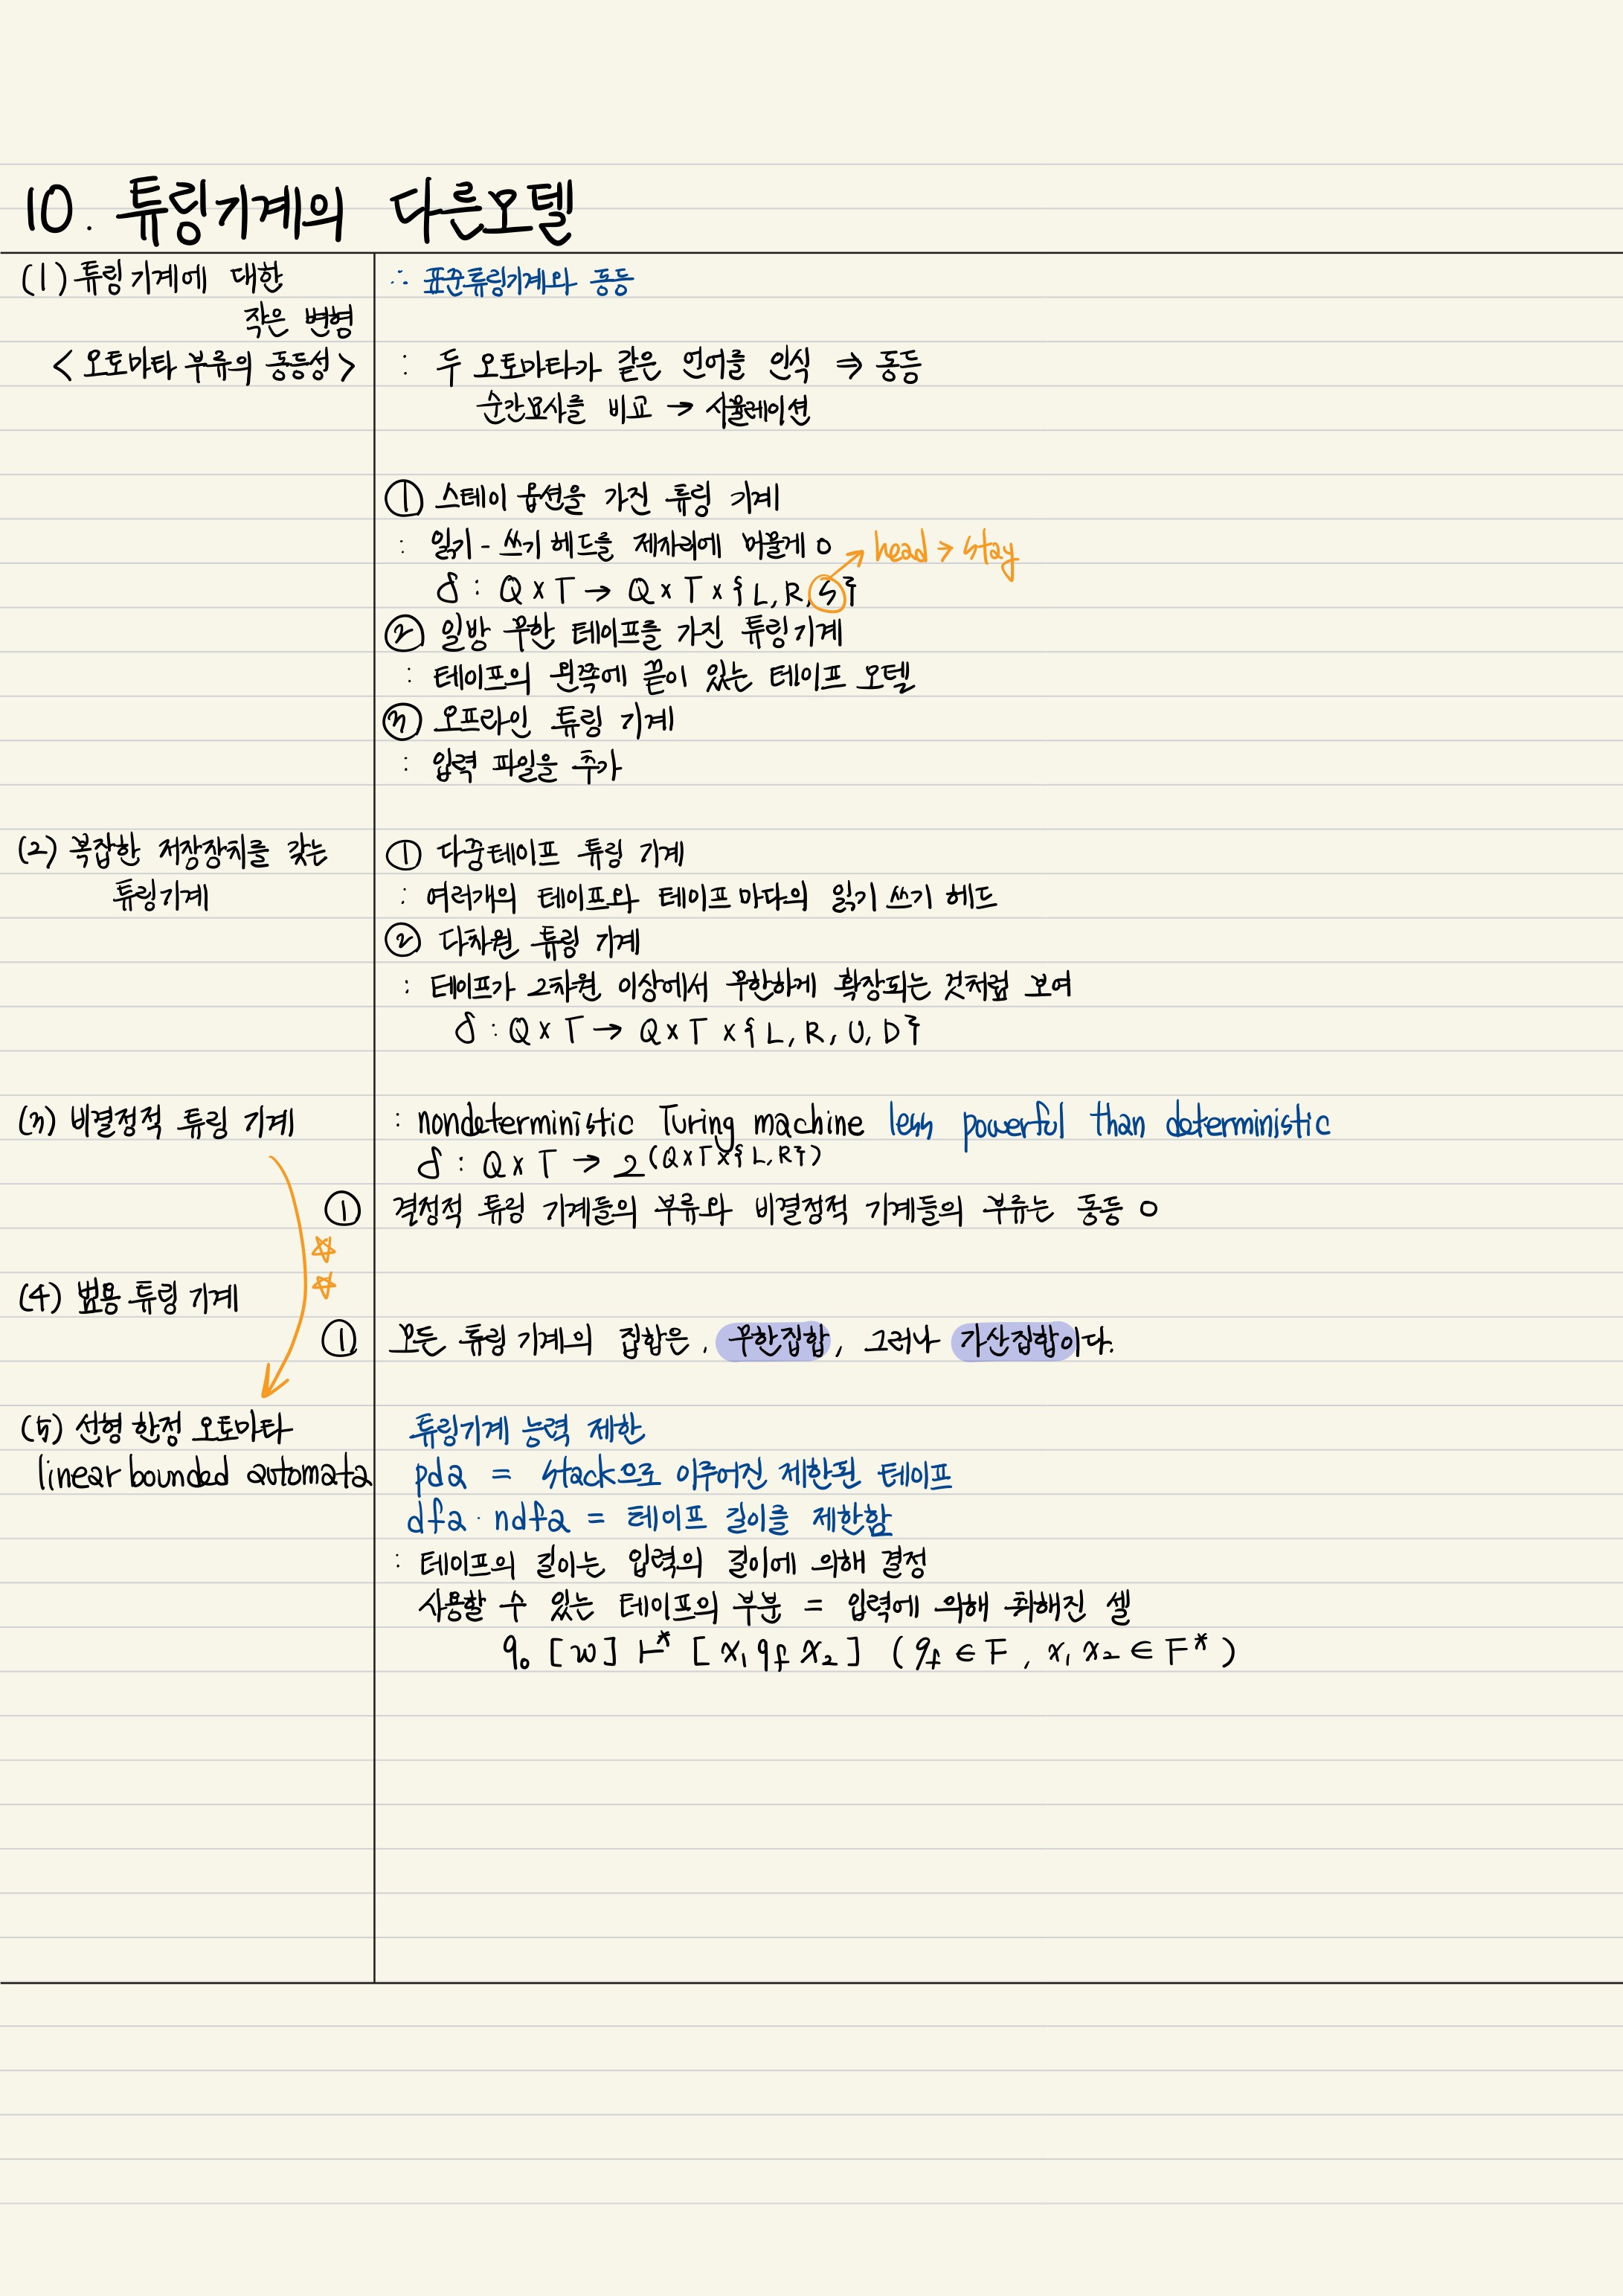 10. 튜링기계의 다른모델
(1) 튜링 기계에 대한
작은 변형
∴ 표준튜링기계와 동등
< 오토마타 부류의 동등성 >
: 두 오토마타가 같은 언어를 인식 ⇒ 동등
순간묘사를 비교 → 시뮬레이션
① 스테이 옵션을 가진 튜링 기계
: 읽기 - 쓰기 헤드를 제자리에 머물게 O
head → stay
δ : Q × T → Q × T × { L, R, S }
② 일방 무한 테이프를 가진 튜링기계
: 테이프의 왼쪽에 끝이 있는 테이프 모델
③ 오프라인 튜링 기계
: 입력 파일을 추가
(2) 복잡한 저장장치를 갖는
튜링기계
① 다중테이프 튜링 기계
: 여러개의 테이프와 테이프 마다의 읽기 쓰기 헤드
② 다차원 튜링 기계
: 테이프가 2차원 이상에서 무한하게 확장되는 것처럼 보여
δ : Q × T → Q × T × { L, R, U, D }
(3) 비결정적 튜링 기계
: nondeterministic Turing machine less powerful than deterministic
δ : Q × T → 2^(Q×T×{L,R})
① 결정적 튜링 기계들의 부류와 비결정적 기계들의 부류는 동등 O
(4) 범용 튜링 기계
① 모든 튜링 기계의 집합은, 무한집합, 그러나 가산집합이다.
(5) 선형 한정 오토마타
linear bounded automata
튜링기계 능력 제한
pda = stack으로 이루어진 제한된 테이프
dfa · ndfa = 테이프 길이를 제한함
: 테이프의 길이는 입력의 길이에 의해 결정
사용할 수 있는 테이프의 부분 = 입력에 의해 취해진 셀
q₀ [w] ⊢* [x₁ q_f x₂] ( q_f ∈ F , x₁ x₂ ∈ F* )